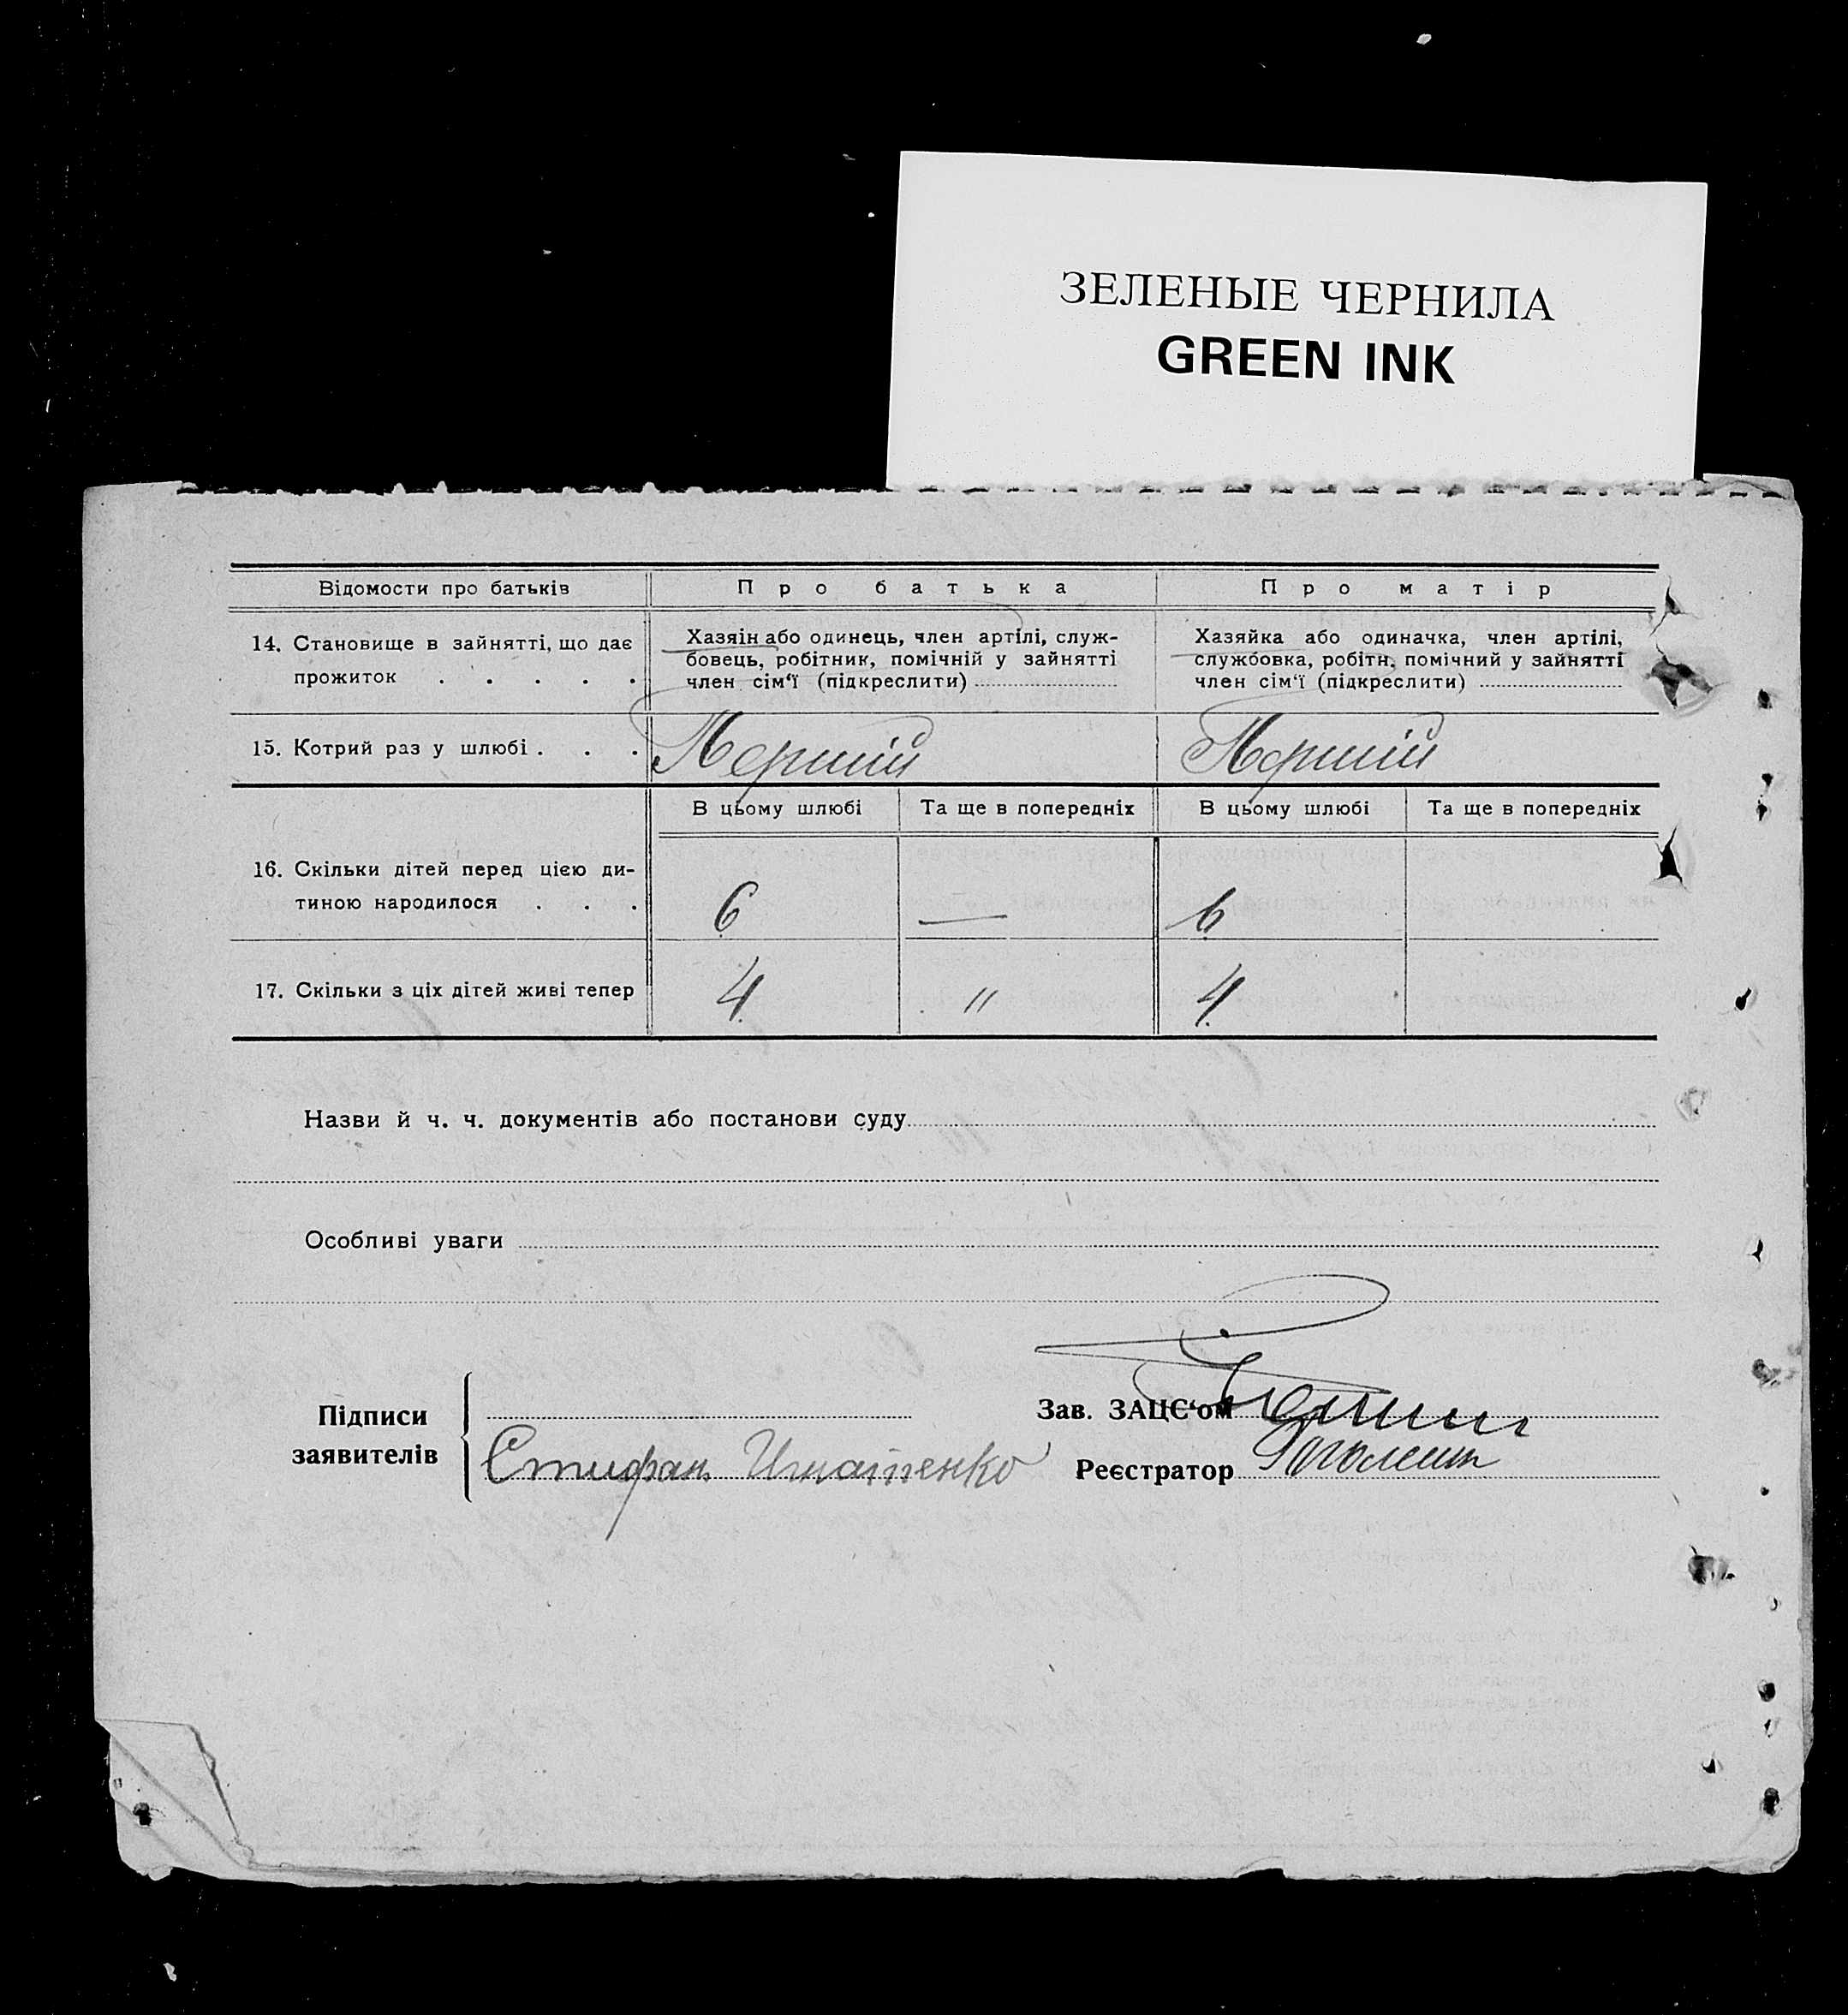 ЗЕЛЕНЫЕ ЧЕРНИЛА
GREEN INK
Відомости про батьків
Про батька
Про матір
14. Становище в зайнятті, що дає
прожиток . . . . .
Хазяін або одинець, член артілі, служ-
бовець, робітник, помічній у зайнятті
член сім‘ї (підкреслити)
Хазяйка або одиначка, член артілі,
службовка, робітн. помічний у зайнятті
член сім‘ї (підкреслити)
15. Котрий раз у шлюбі . . .
Перший
Перший
В цьому шлюбі
Та ще в попередніх
В цьому шлюбі
Та ще в попередніх
16. Скільки дітей перед цією ди-
тиною народилося . . .
6
—
6
17. Скільки з ціх дітей живі тепер
4
"
4
Назви й ч. ч. документів або постанови суду
Особливі уваги
Підписи
заявителів
Стифан Игнатенко
Зав. ЗАЦС‘ом
Реєстратор